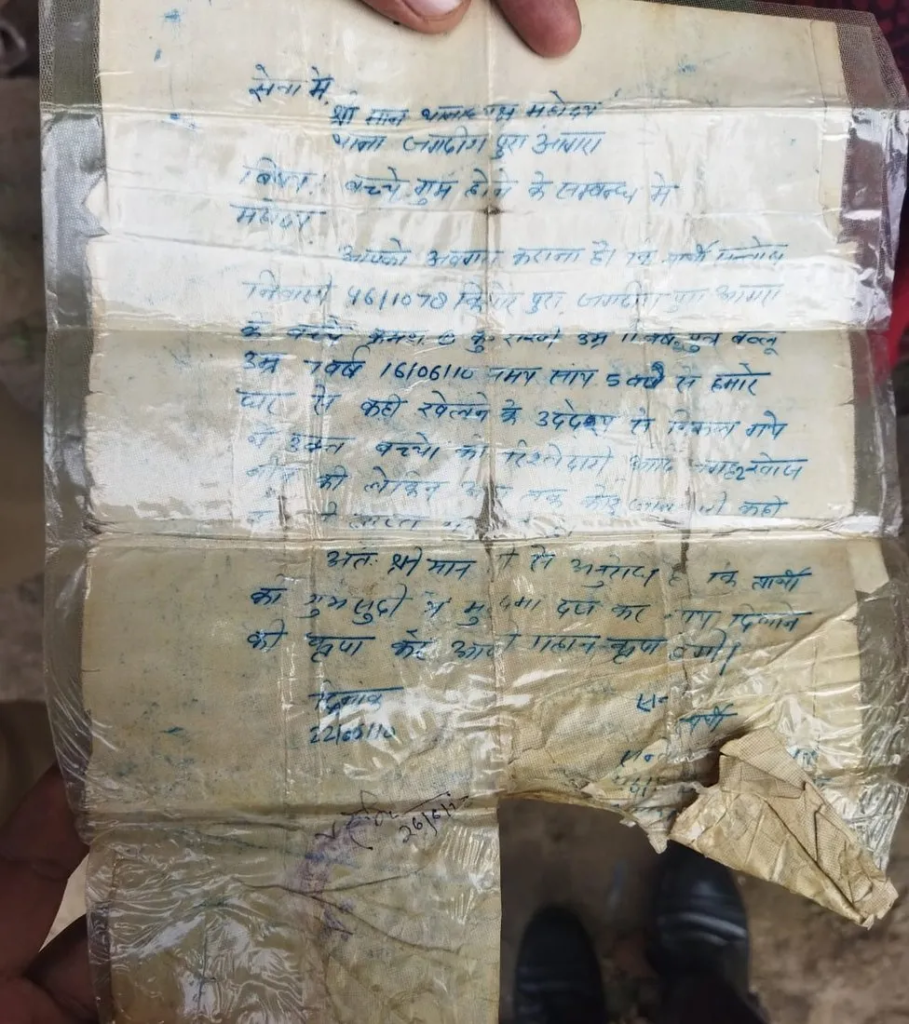 सेवा में,
श्री मान थानाध्यक्ष महोदय
थाना जगदीश पुरा आगरा
विषय: बच्चे गुम होने के सम्बन्ध में
महोदय
आपको अवगत कराना है। कि प्रार्थी
निवासी 46/1078 किशोर पुरा जगदीश पुरा आगरा
के बच्चे क्रमशः कु० राखी उम्र 11 वर्ष पुत्र बब्लू
उम्र 7 वर्ष 16/06/10 समय सांय 5 बजे से हमारे
घर से कही खेलने के उद्देश्य से निकल गये
उक्त बच्चो की रिश्तेदारी जगह 2 खोज
की लेकिन आज तक कोई कही
अतः श्री मान जी से अनुरोध है कि प्रार्थी
की गुमशुदी में मुकदमा दर्ज कर न्याय दिलाने
की कृपा करें आपकी महान कृपा होगी।
दिनांक
22/06/10
प्रार्थी
26/6/10